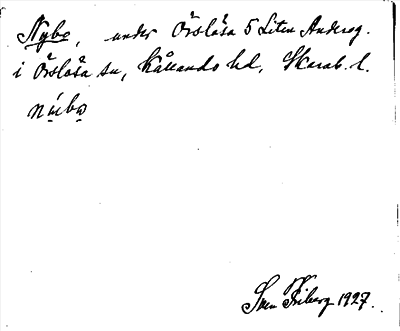 Nybo, under Örslösa 5 Liten Andersg.
i Örslösa sn, Kållands hd, Skarab. l.
nýbo
Sven Friberg 1927.